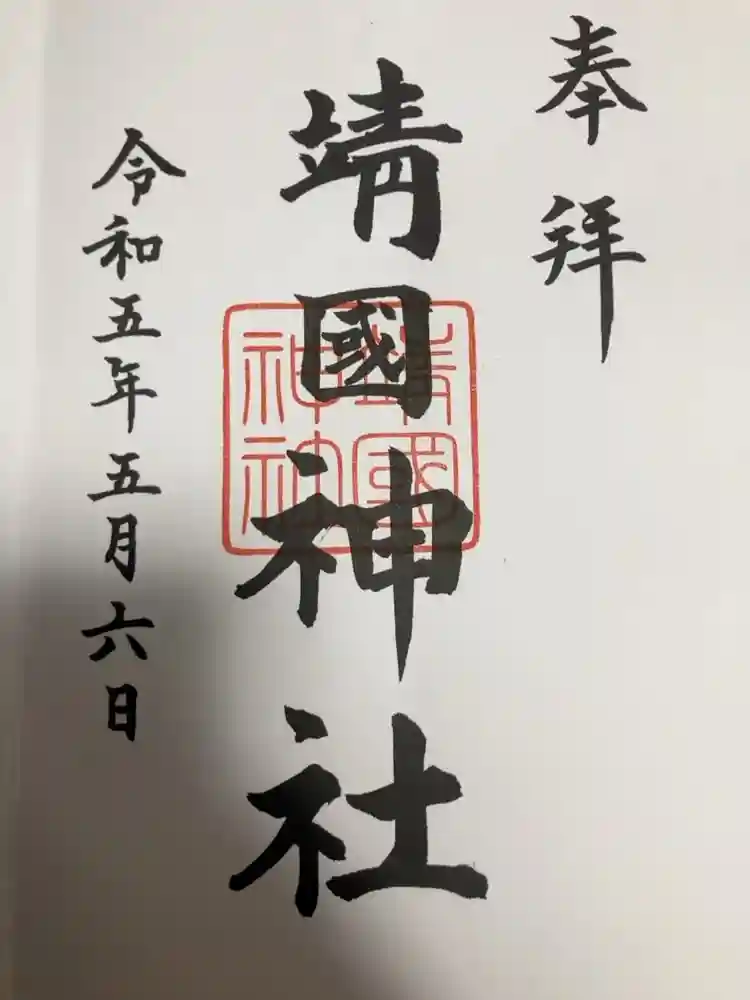 奉拜
靖國神社
靖國
神社
令和五年五月六日